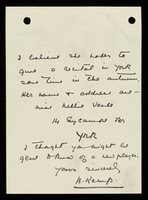 I believe she hopes to
give a recital in York
some time in the autumn.
Her name & address are
miss Nellie
14 Sycamore Ter
York
I thought you might be
glad to know of a new player.
Yours sincerely
N. Kemp.